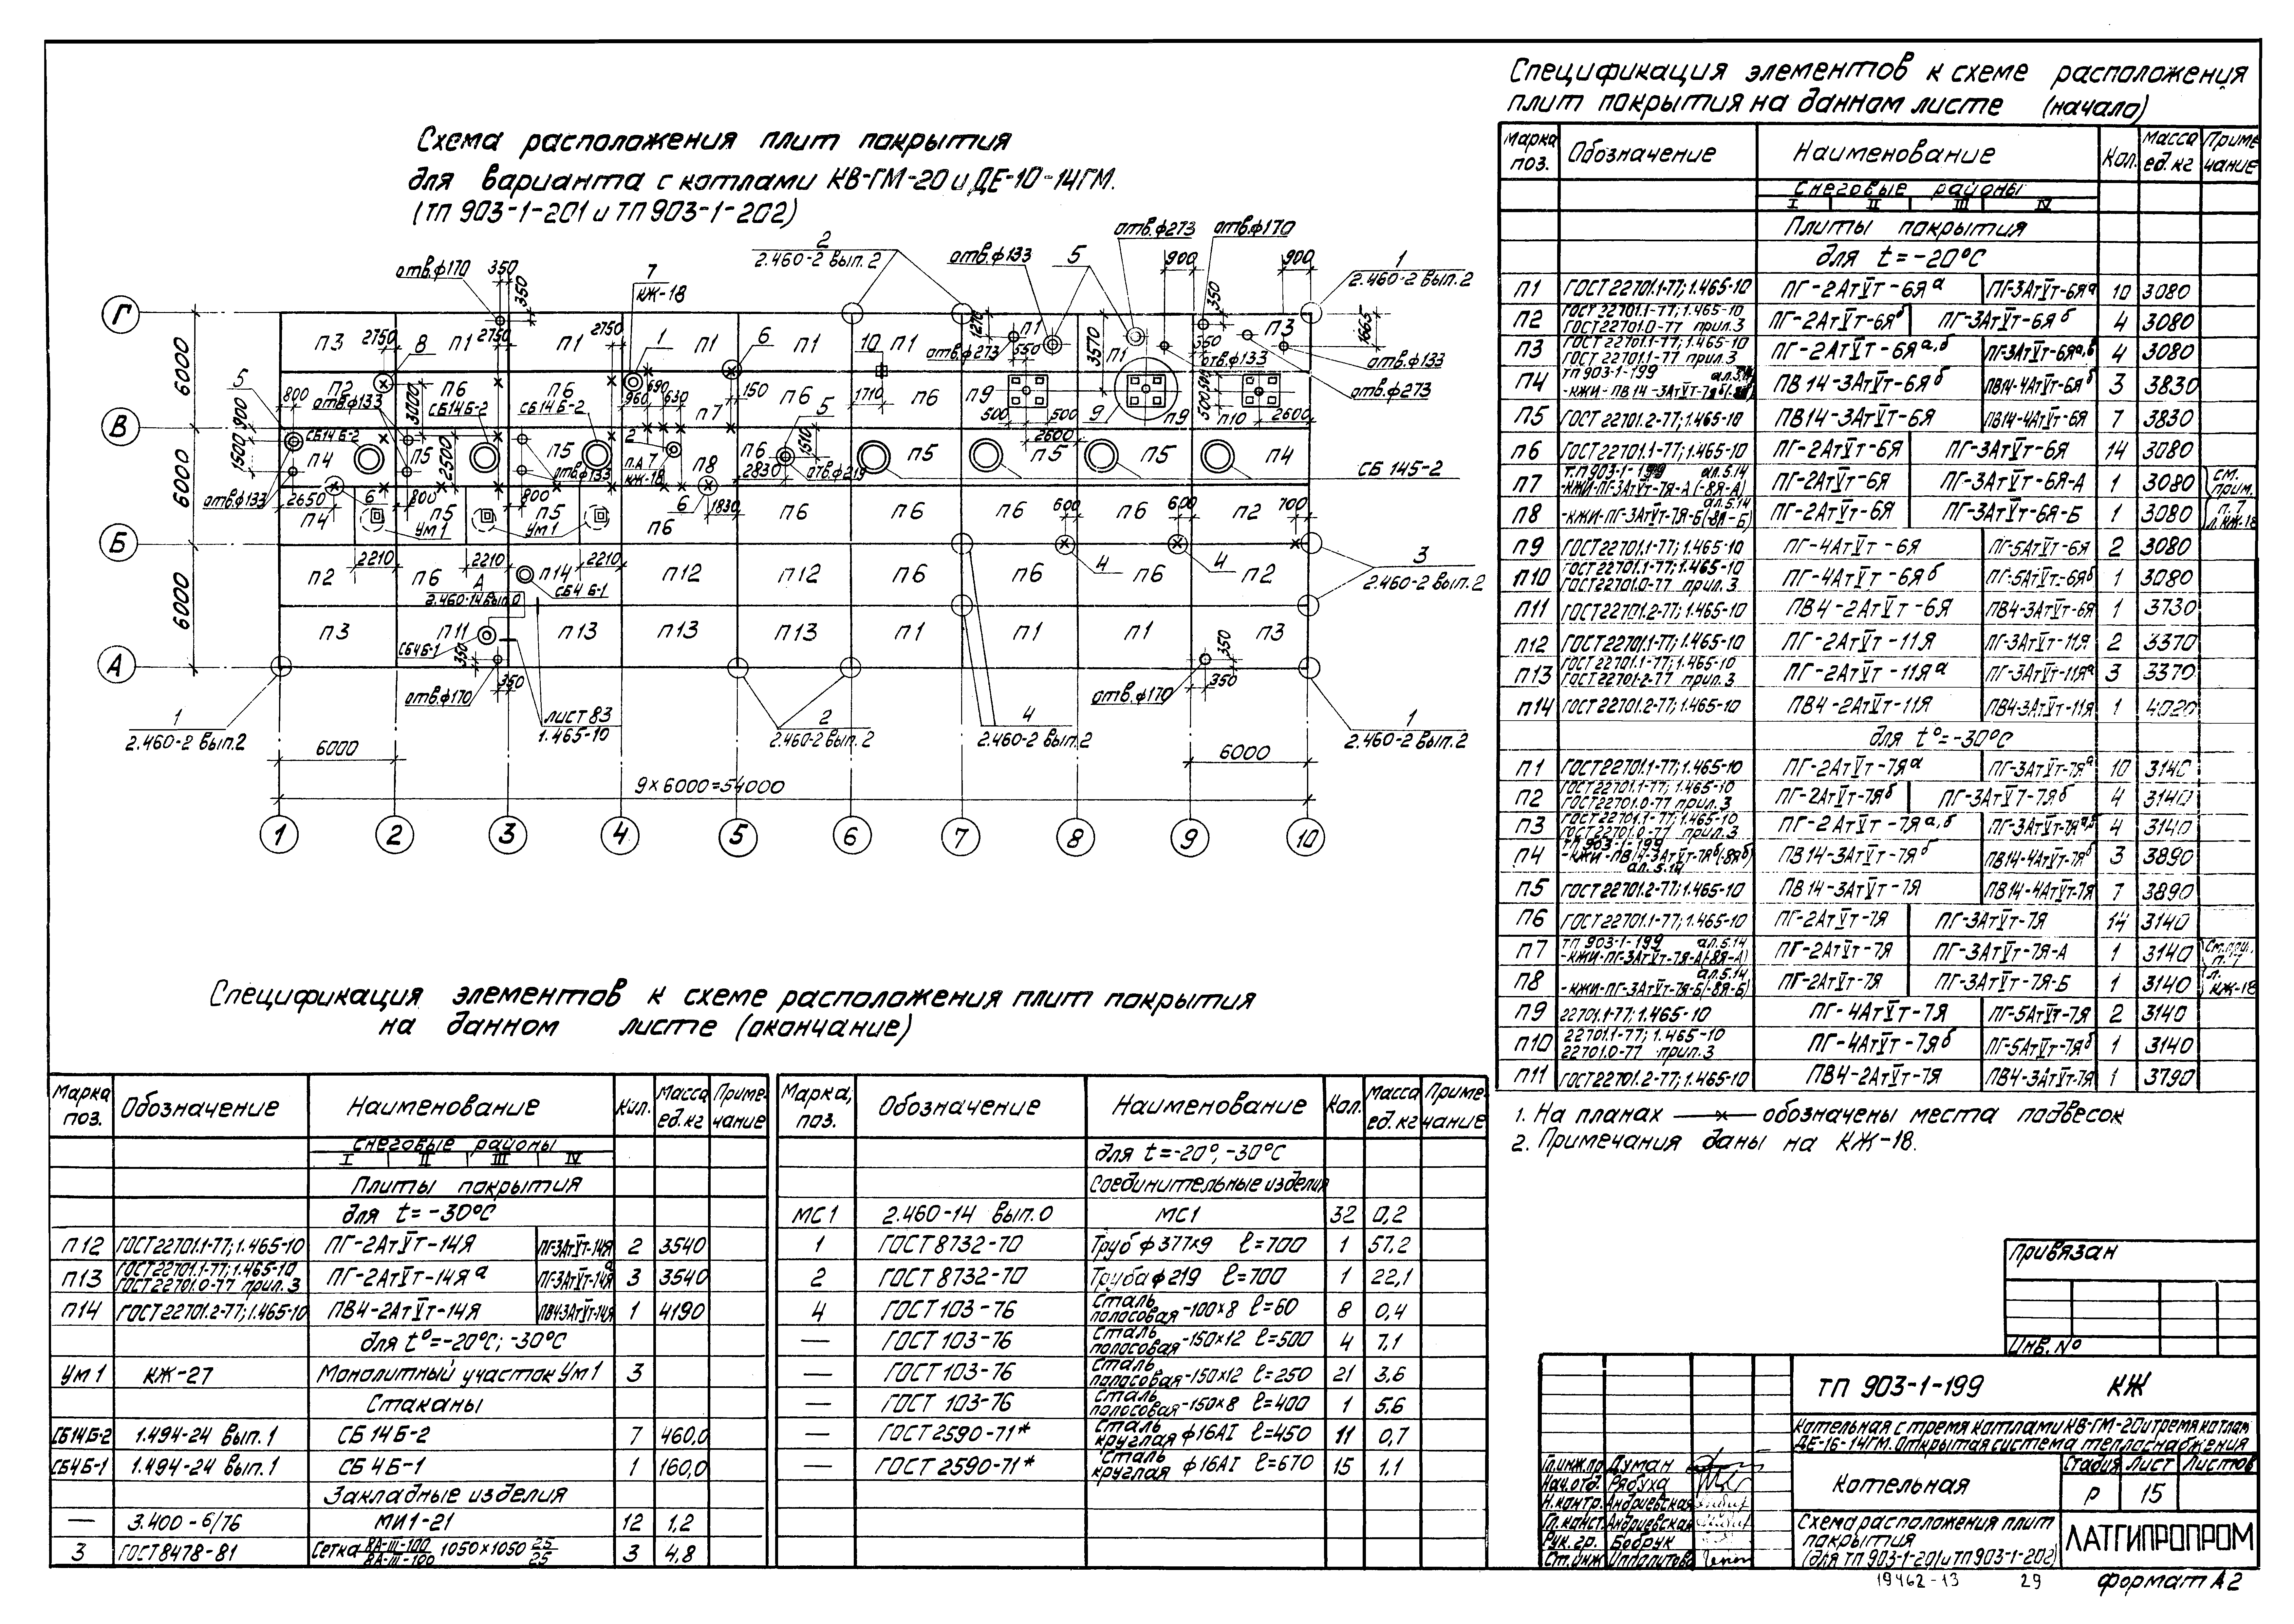 Схема расположения плит покрытия
для варианта с котлами КВ-ГМ-20 и ДЕ-10-14ГМ.
(ТП 903-1-201 и ТП 903-1-202)
отв.ф170
350
350
7
КЖ-18
2
2.460-2 вып.2
отв.ф133
5
отв.ф273
отв.ф170
900
900
1
2.460-2 вып.2
Г
П3 2750 8 П1 2750 П1 2750 1 П1 6 П1 10 П1 1270 П1 3570 П1 350 П3 1665
отв.ф273
550
отв.ф133
отв.ф133
отв.ф273
6000
5
800
П2
отв.ф133
3000
П6
СБ14Б-2
П6
СБ14Б-2
960
690
630
П7
150
П6
1710
П6
П9
500
500
2600
9
П9
500
500
П10
2600
В
900
1500
СБ14Б-2
П4
П5
2500
П5
отв.ф133
2
П.А 7
КЖ-18
П8
П6
2830
5
1510
отв.ф219
П5
П5
П5
П4
СБ 145-2
отв.ф133
2650
6
800
800
6
1830
6000
П4
Ум1
П5
Ум1
П5
П6
П6
П6
П6
600
П6
600
П2
700
Б
2210
2210
2210
4
4
3
2.460-2 вып.2
П2
П6
А
2.460-14 вып.0
П14
СБ4Б-1
П12
П12
П6
П6
П6
П2
6000
П3
П11
СБ4Б-1
350
П13
П13
П13
П1
П1
П1
П3
350
А
отв.ф170
350
отв.ф170
350
1
2.460-2 вып.2
лист 83
1.465-10
2
2.460-2 вып.2
4
2.460-2 вып.2
1
2.460-2 вып.2
6000
6000
9×6000=54000
1 2 3 4 5 6 7 8 9 10
Спецификация элементов к схеме расположения
плит покрытия на данном листе (начало)
Марка поз. Обозначение Наименование Кол. Масса ед.кг Примечание
Снеговые районы
I II III IV
Плиты покрытия
для t=-20°С
П1 ГОСТ 22701.1-77; 1.465-10 ПГ-2АтⅤт-6Яа ПГ-3АтⅤт-6Яа 10 3080
П2 ГОСТ 22701.1-77; 1.465-10 ГОСТ 22701.0-77 прил.3 ПГ-2АтⅤт-6Яб ПГ-3АтⅤт-6Яб 4 3080
П3 ГОСТ 22701.1-77; 1.465-10 ГОСТ 22701.1-77 прил.3 ПГ-2АтⅤт-6Яа,б ПГ-3АтⅤт-6Яа,б 4 3080
П4 ТП 903-1-199 -КЖИ-ПВ14-3АтⅤт-7Яб ПВ14-3АтⅤт-6Яб ПВ14-4АтⅤт-6Яб 3 3830
П5 ГОСТ 22701.2-77; 1.465-10 ПВ14-3АтⅤт-6Я ПВ14-4АтⅤт-6Я 7 3830
П6 ГОСТ 22701.1-77; 1.465-10 ПГ-2АтⅤт-6Я ПГ-3АтⅤт-6Я 14 3080
П7 Т.П 903-1-199 ал.5.14 -КЖИ-ПГ-3АтⅤт-7Я-А(-8Я-А) ПГ-2АтⅤт-6Я ПГ-3АтⅤт-6Я-А 1 3080 см. прим.
П8 ал.5.14 -КЖИ-ПГ-3АтⅤт-7Я-Б(-8Я-Б) ПГ-2АтⅤт-6Я ПГ-3АтⅤт-6Я-Б 1 3080 п.7 л.КЖ-18
П9 ГОСТ 22701.1-77; 1.465-10 ПГ-4АтⅤт-6Я ПГ-5АтⅤт-6Я 2 3080
П10 ГОСТ 22701.1-77; 1.465-10 ГОСТ 22701.0-77 прил.3 ПГ-4АтⅤт-6Яб ПГ-5АтⅤт-6Яб 1 3080
П11 ГОСТ 22701.2-77; 1.465-10 ПВ4-2АтⅤт-6Я ПВ4-3АтⅤт-6Я 1 3730
П12 ГОСТ 22701.1-77; 1.465-10 ПГ-2АтⅤт-11Я ПГ-3АтⅤт-11Я 2 3370
П13 ГОСТ 22701.1-77; 1.465-10 ГОСТ 22701.2-77 прил.3 ПГ-2АтⅤт-11Яа ПГ-3АтⅤт-11Яа 3 3370
П14 ГОСТ 22701.2-77; 1.465-10 ПВ4-2АтⅤт-11Я ПВ4-3АтⅤт-11Я 1 4020
для t°=-30°С
П1 ГОСТ 22701.1-77; 1.465-10 ПГ-2АтⅤт-7Яа ПГ-3АтⅤт-7Яа 10 3140
П2 ГОСТ 22701.1-77; 1.465-10 ГОСТ 22701.0-77 прил.3 ПГ-2АтⅤт-7Яб ПГ-3АтⅤт-7Яб 4 3140
П3 ГОСТ 22701.1-77; 1.465-10 ГОСТ 22701.0-77 прил.3 ПГ-2АтⅤт-7Яа,б ПГ-3АтⅤт-7Яа,б 4 3140
П4 ТП 903-1-199 -КЖИ-ПВ14-3АтⅤт-7Яб(-8Яб) ал.5.14 ПВ14-3АтⅤт-7Яб ПВ14-4АтⅤт-7Яб 3 3890
П5 ГОСТ 22701.2-77; 1.465-10 ПВ14-3АтⅤт-7Я ПВ14-4АтⅤт-7Я 7 3890
П6 ГОСТ 22701.1-77; 1.465-10 ПГ-2АтⅤт-7Я ПГ-3АтⅤт-7Я 14 3140
П7 ТП 903-1-199 ал.5.14 -КЖИ-ПГ-3АтⅤт-7Я-А(-8Я-А) ПГ-2АтⅤт-7Я ПГ-3АтⅤт-7Я-А 1 3140 См.прим. п.7
П8 ал.5.14 -КЖИ-ПГ-3АтⅤт-7Я-Б(-8Я-Б) ПГ-2АтⅤт-7Я ПГ-3АтⅤт-7Я-Б 1 3140 л. КЖ-18
П9 22701.1-77; 1.465-10 ПГ-4АтⅤт-7Я ПГ-5АтⅤт-7Я 2 3140
П10 22701.1-77; 1.465-10 22701.0-77 прил.3 ПГ-4АтⅤт-7Яб ПГ-5АтⅤт-7Яб 1 3140
П11 ГОСТ 22701.2-77; 1.465-10 ПВ4-2АтⅤт-7Я ПВ4-3АтⅤт-7Я 1 3790
1. На планах —×— обозначены места подвесок
2. Примечания даны на КЖ-18.
Спецификация элементов к схеме расположения плит покрытия
на данном листе (окончание)
Марка поз. Обозначение Наименование Кол. Масса ед.кг Примечание
Снеговые районы
I II III IV
Плиты покрытия
для t=-30°С
П12 ГОСТ 22701.1-77; 1.465-10 ПГ-2АтⅤт-14Я ПГ-3АтⅤт-14Я 2 3540
П13 ГОСТ 22701.1-77; 1.465-10 ГОСТ 22701.0-77 прил.3 ПГ-2АтⅤт-14Яа ПГ-3АтⅤт-14Яа 3 3540
П14 ГОСТ 22701.2-77; 1.465-10 ПВ4-2АтⅤт-14Я ПВ4-3АтⅤт-14Я 1 4190
для t°=-20°С; -30°С
Ум1 КЖ-27 Монолитный участок Ум1 3
Стаканы
СБ14Б-2 1.494-24 вып.1 СБ 14Б-2 7 460,0
СБ4Б-1 1.494-24 вып.1 СБ 4Б-1 1 160,0
Закладные изделия
— 3.400-6/76 МИ1-21 12 1,2
3 ГОСТ 8478-81 Сетка 8А-III-100/8А-III-100 1050×1050 25/25 3 4,8
Марка, поз. Обозначение Наименование Кол. Масса ед.кг Примечание
для t=-20°, -30°С
Соединительные изделия
МС1 2.460-14 вып.0 МС1 32 0,2
1 ГОСТ 8732-70 Труб ф377×9 ℓ=700 1 57,2
2 ГОСТ 8732-70 Труба ф219 ℓ=700 1 22,1
4 ГОСТ 103-76 Сталь полосовая -100×8 ℓ=60 8 0,4
— ГОСТ 103-76 Сталь полосовая -150×12 ℓ=500 4 7,1
— ГОСТ 103-76 Сталь полосовая -150×12 ℓ=250 21 3,6
— ГОСТ 103-76 Сталь полосовая -150×8 ℓ=400 1 5,6
— ГОСТ 2590-71* Сталь круглая ф16АI ℓ=450 11 0,7
— ГОСТ 2590-71* Сталь круглая ф16АI ℓ=670 15 1,1
Привязан
Инв.№
ТП 903-1-199 КЖ
Котельная с тремя котлами КВ-ГМ-20 и тремя котлам
ДЕ-16-14ГМ. Открытая система теплоснабжения
Гл.инж.пр Думан
Нач.отд. Рябуха
Н.контр. Андриевская
Гл.конст. Андриевская
Рук.гр. Бобрук
Ст.инж Ипполитова
Котельная
Стадия Лист Листов
Р 15
Схема расположения плит
покрытия
(для ТП 903-1-201 и ТП 903-1-202)
ЛАТГИПРОПРОМ
19462-13 29 формат А2